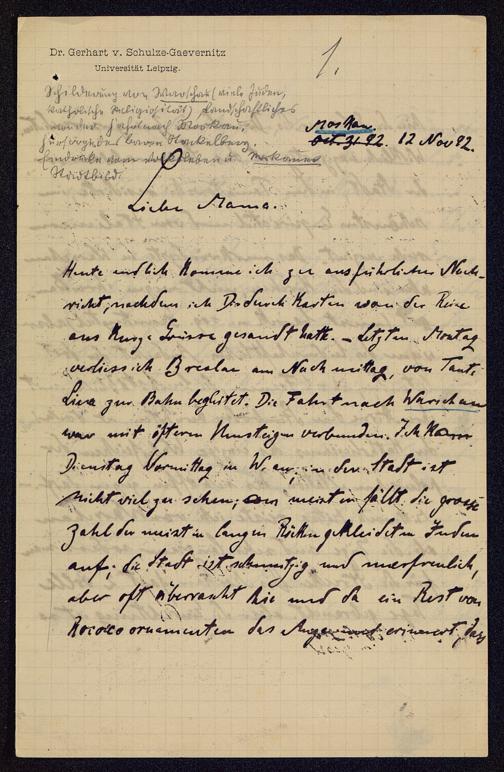 Dr. Gerhart v. Schulze-Gaevernitz
Universität Leipzig.
1.
Schilderung von Warschau (viele Juden,
katholische Religiosität) Landschaftliches
von der Fahrt nach Moskau,
Fürsorge des Baron Stackelberg,
Eindrücke vom leben u. Moskauer
Stadtbild.
Moskau
Oct. 31 92. 12 Nov 92.
Liebe Mama.
Heute endlich komme ich zu ausführlichen Nach-
richt, nachdem ich Dir durch Karten von der Reise
aus kurze Grüsse gesandt hatte. – Letzten Montag
verliess ich Breslau am Nachmittag, von Tante
Lina zur Bahn begleitet. Die Fahrt nach Warschau
war mit öfterem Umsteigen verbunden. Ich kam
Dienstag Vormittag in W. an; in der Stadt ist
nicht viel zu sehen; am meisten fällt die grosse
Zahl der meist in langen Röcken gekleideten Juden
auf; die Stadt ist schmutzig und unerfreulich,
aber oft überrascht hie und da ein Rest von
Rococoornamenten das Auge und erinnert, dass